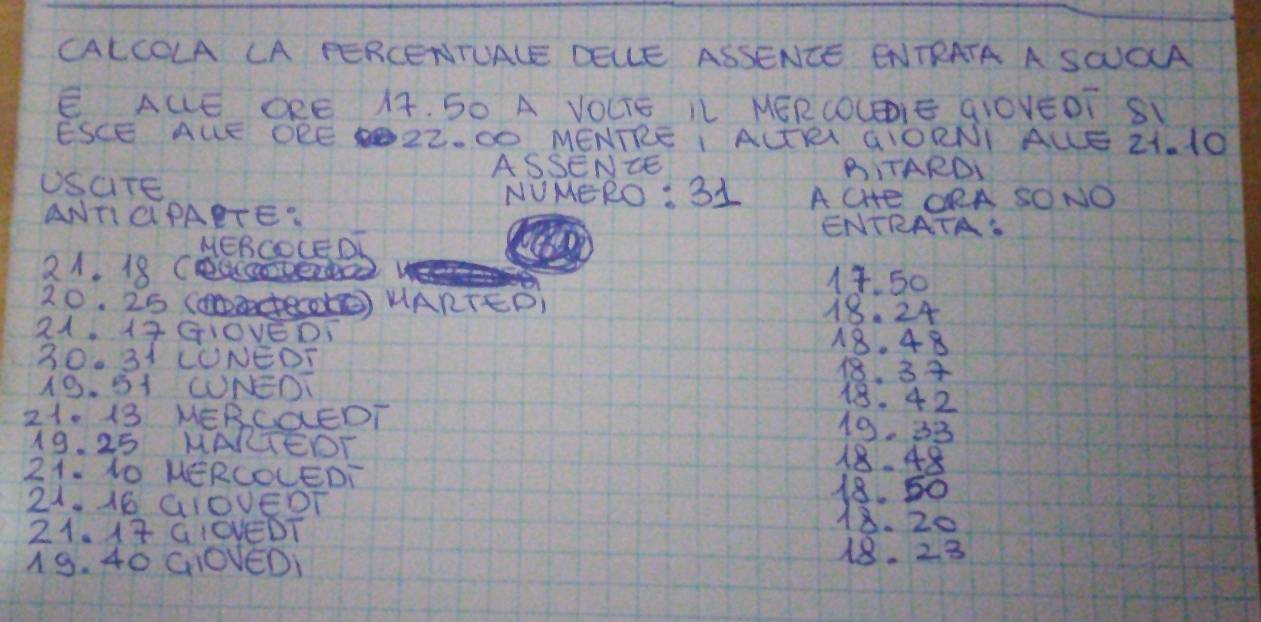 CALCOLA LA PERCENTUALE DELLE ASSENZE ENTRATA A SCUOLA
È ALLE ORE 17.50 A VOLTE IL MERCOLEDI E GIOVEDÌ SI
ESCE ALLE ORE 22.00 MENTRE I ALTRI GIORNI ALLE 21.10
USCITE
ANTICIPARTE:
MERCOLEDÌ
21.18
20.25 MARTEDI
21.17 GIOVEDÌ
20.31 LUNEDÌ
19.51 LUNEDÌ
21.13 MERCOLEDÌ
19.25 MARTEDÌ
21.10 MERCOLEDÌ
21.16 GIOVEDÌ
21.17 GIOVEDÌ
19.40 GIOVEDI
ASSENZE
NUMERO: 31
RITARDI
A CHE ORA SONO
ENTRATA:
17.50
18.24
18.48
18.37
18.42
19.33
18.48
18.50
18.20
18.23